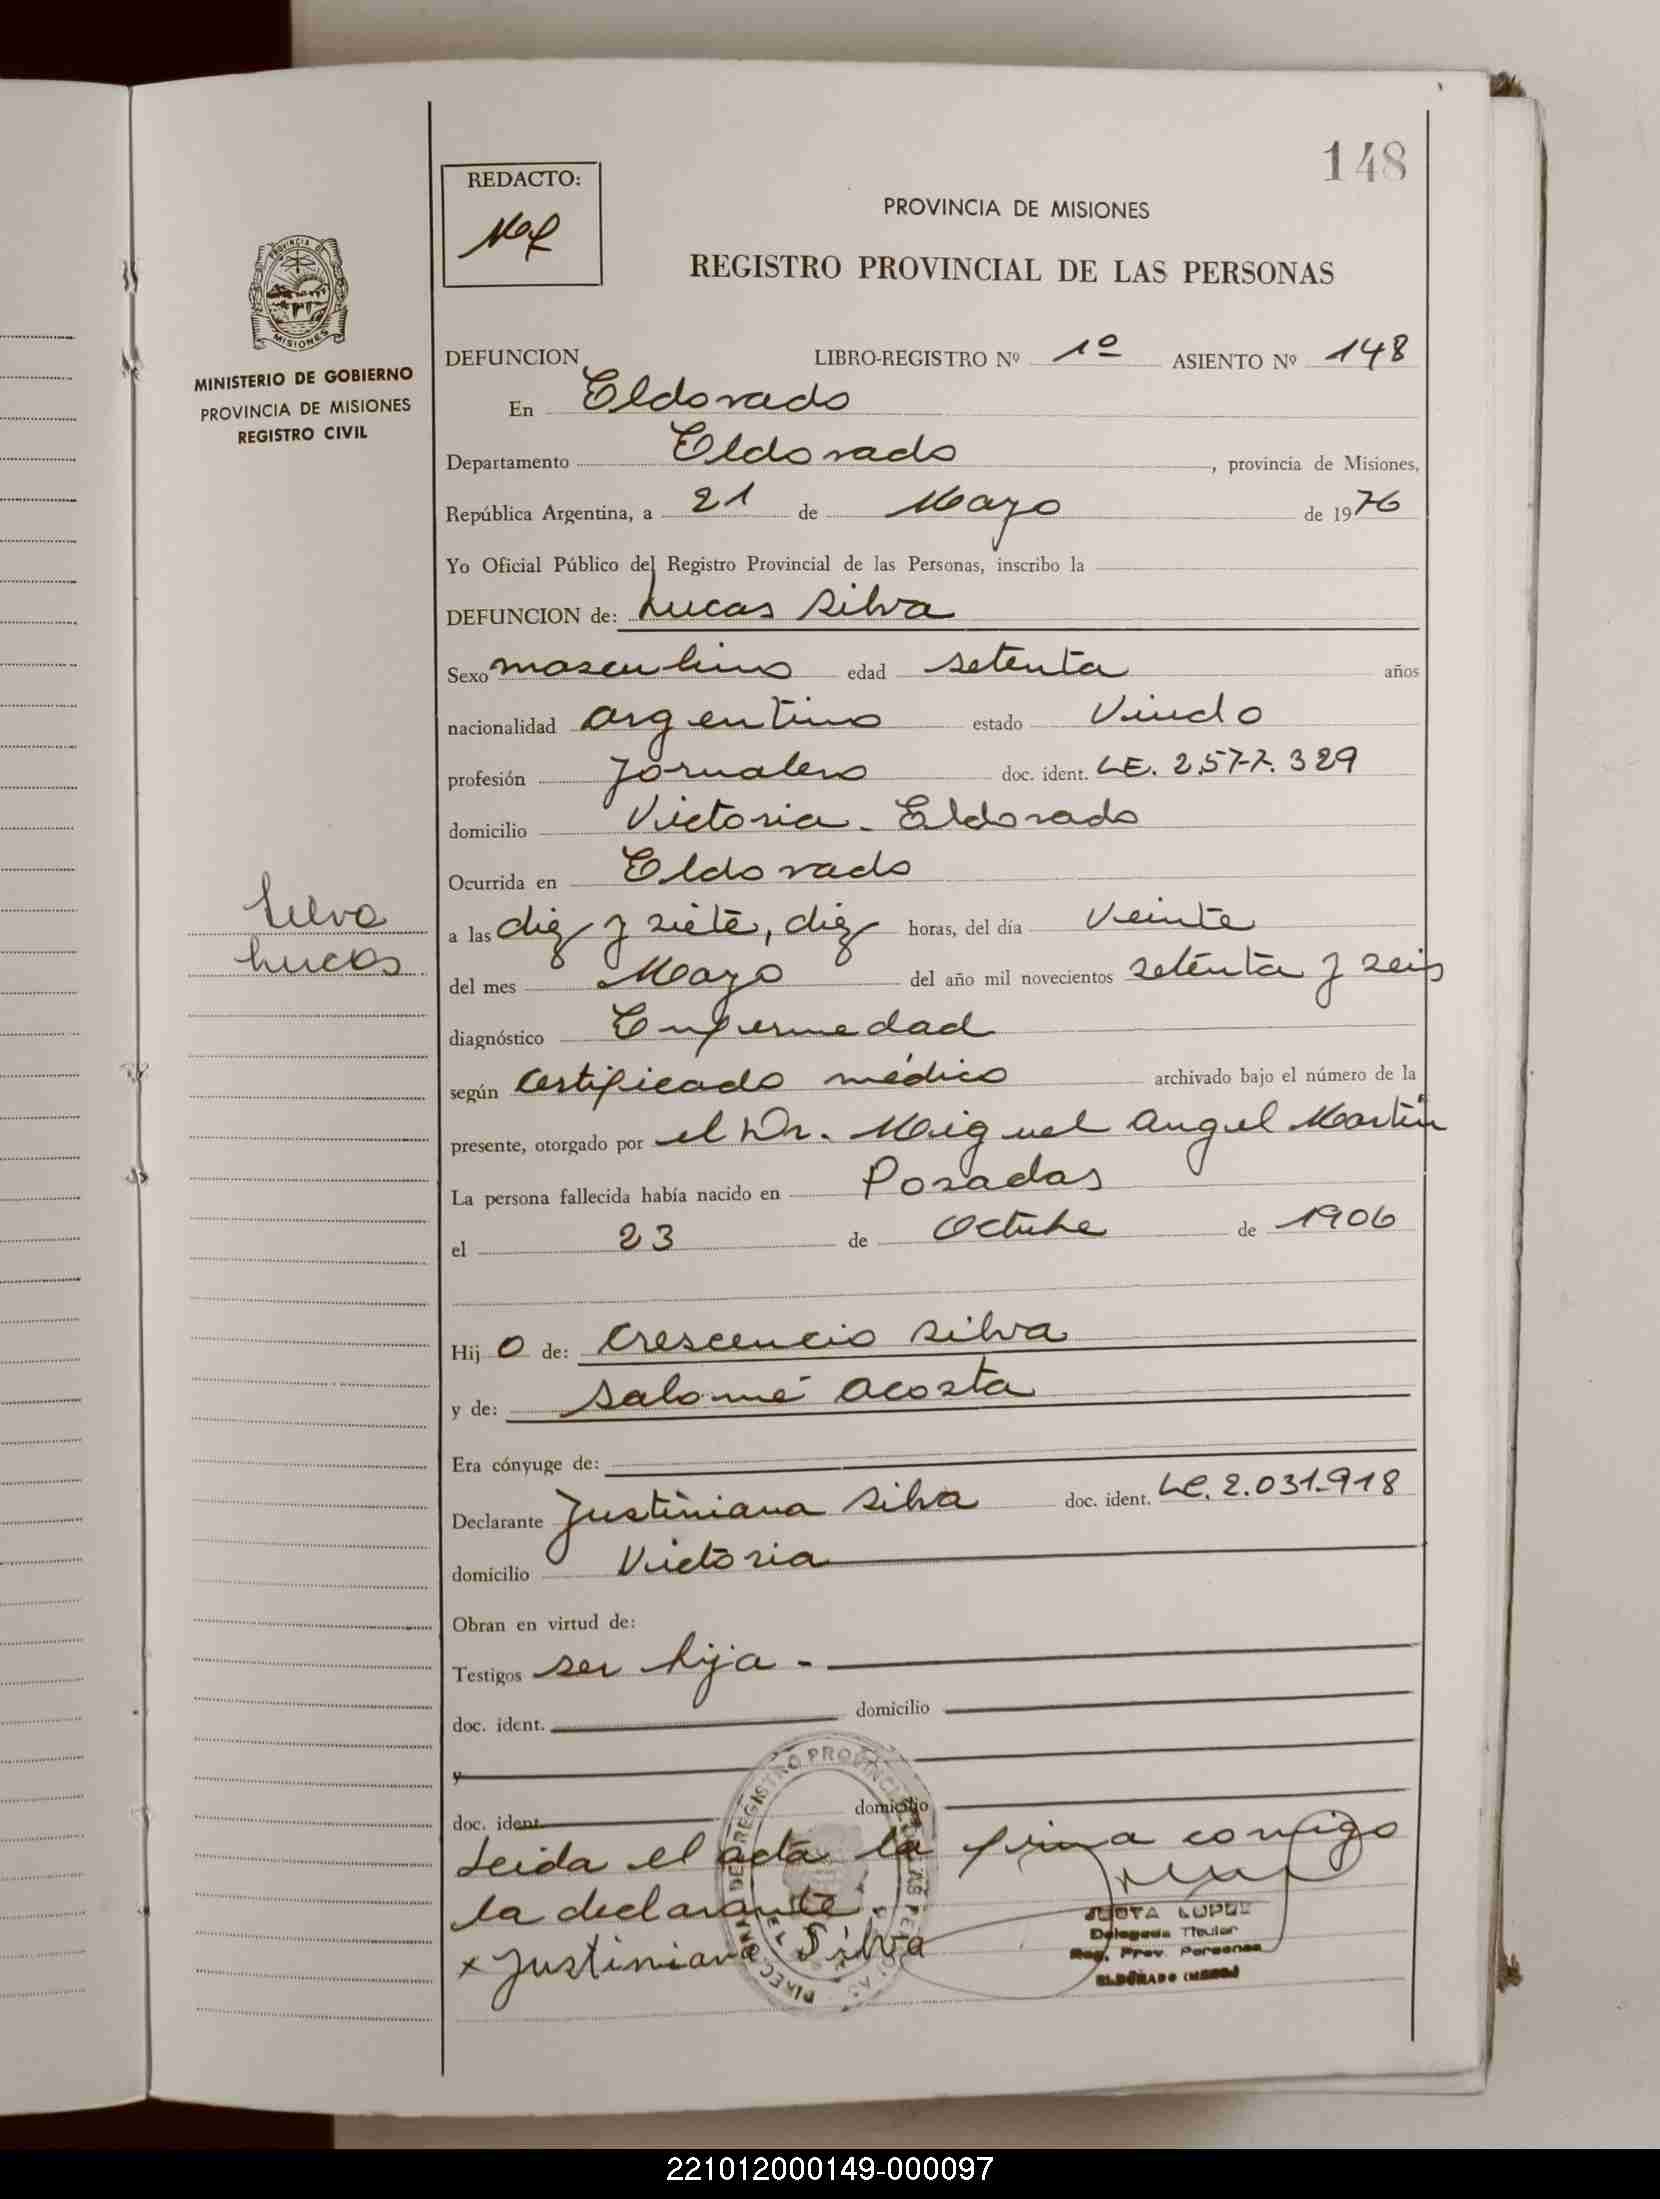 148
REDACTO:
PROVINCIA DE MISIONES
REGISTRO PROVINCIAL DE LAS PERSONAS
PROVINCIA DE
MISIONES
MINISTERIO DE GOBIERNO
PROVINCIA DE MISIONES
REGISTRO CIVIL
DEFUNCION LIBRO-REGISTRO Nº 1º ASIENTO Nº 148
En Eldorado
Departamento Eldorado, provincia de Misiones,
República Argentina, a 21 de Mayo de 1976
Yo Oficial Público del Registro Provincial de las Personas, inscribo la
DEFUNCION de: Lucas Silva
Sexo masculino edad setenta años
nacionalidad argentino estado Viudo
profesión Jornalero doc. ident. LE. 2.577.329
domicilio Victoria - Eldorado
Ocurrida en Eldorado
Silva
a las diez y siete, diez horas, del día Veinte
Lucas
del mes Mayo del año mil novecientos setenta y seis
diagnóstico Enfermedad
según Certificado médico archivado bajo el número de la
presente, otorgado por el Dr. Miguel Angel Martin
La persona fallecida había nacido en Posadas
el 23 de Octubre de 1906
Hijo de: Crescencio Silva
y de: Salomé Acosta
Era cónyuge de:
Declarante Justiniana Silva doc. ident. LC. 2.031.918
domicilio Victoria
Obran en virtud de:
Testigos ser hija -
doc. ident. domicilio
y
doc. ident. domicilio
Leida el acta la firma conmigo
la declarante.
x Justiniana Silva
LOPEZ
Delegada Titular
Reg. Prov. Personas
ELDORADO
221012000149-000097